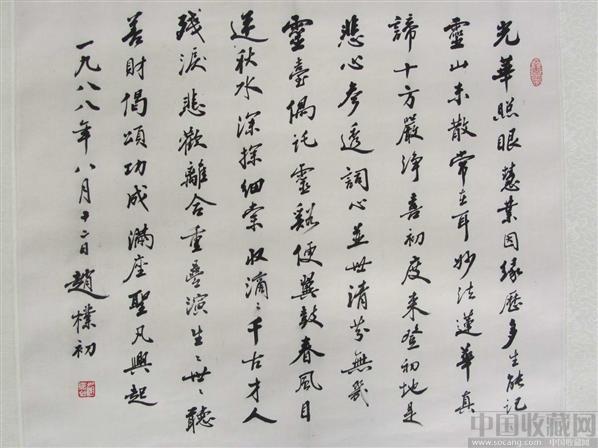 光華照眼慧業因緣歷多生能記
靈山未散常在耳妙法蓮華真
諦十方嚴淨喜初度來登初地是
悲心參透詞心並世清芬無幾
靈臺偶託靈谿便翼鼓春風目
送秋水深探細索收滴〻千古才人
殘淚悲歡離合重疊演生〻世〻聽
善財偈頌功成滿座聖凡興起
一九八八年八月十二日趙樸初
中国收藏网
www.socang.com中国收藏网